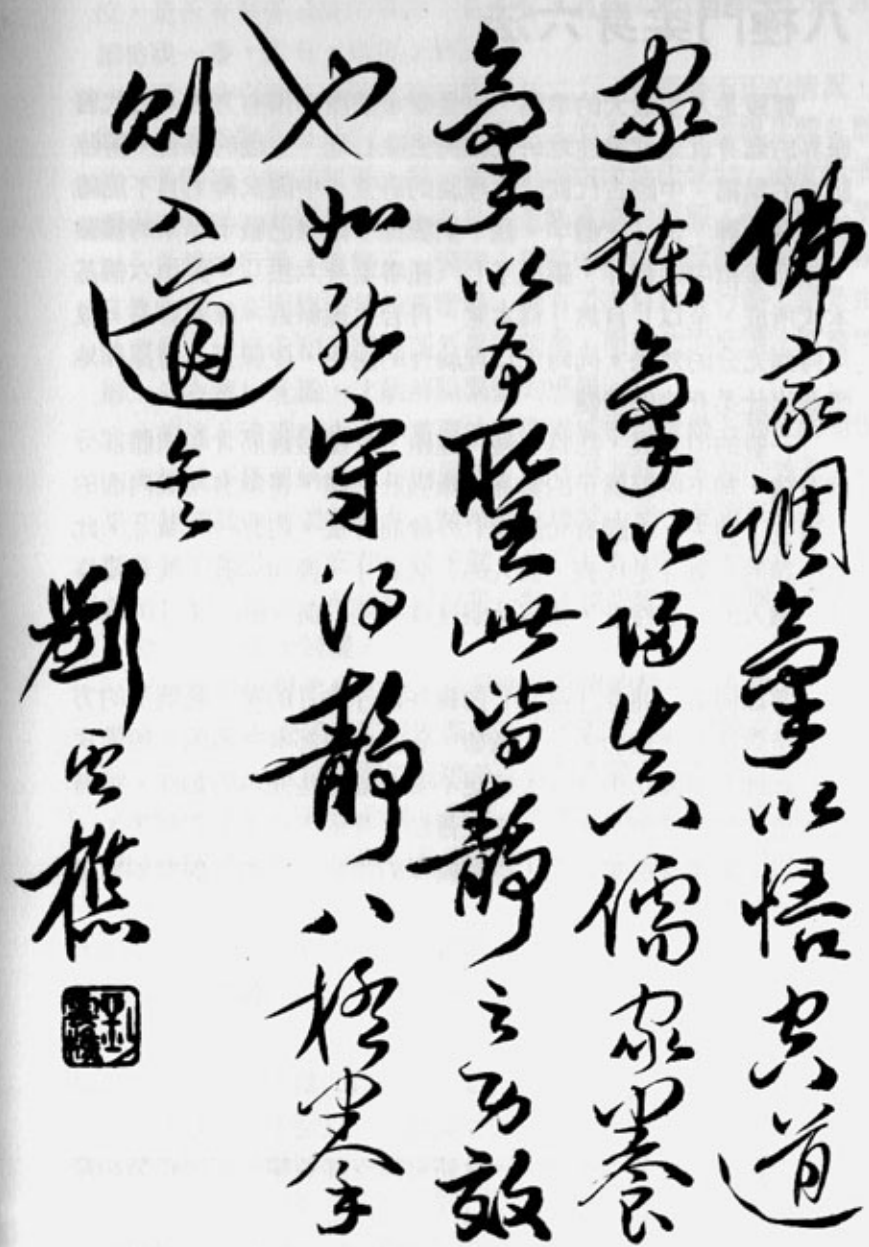 佛家調氣以悟空道
家鍊氣以歸真儒家養
氣以為聖此皆靜之功效
也如能守得靜八極拳
則入道矣 劉雲樵
劉雲樵